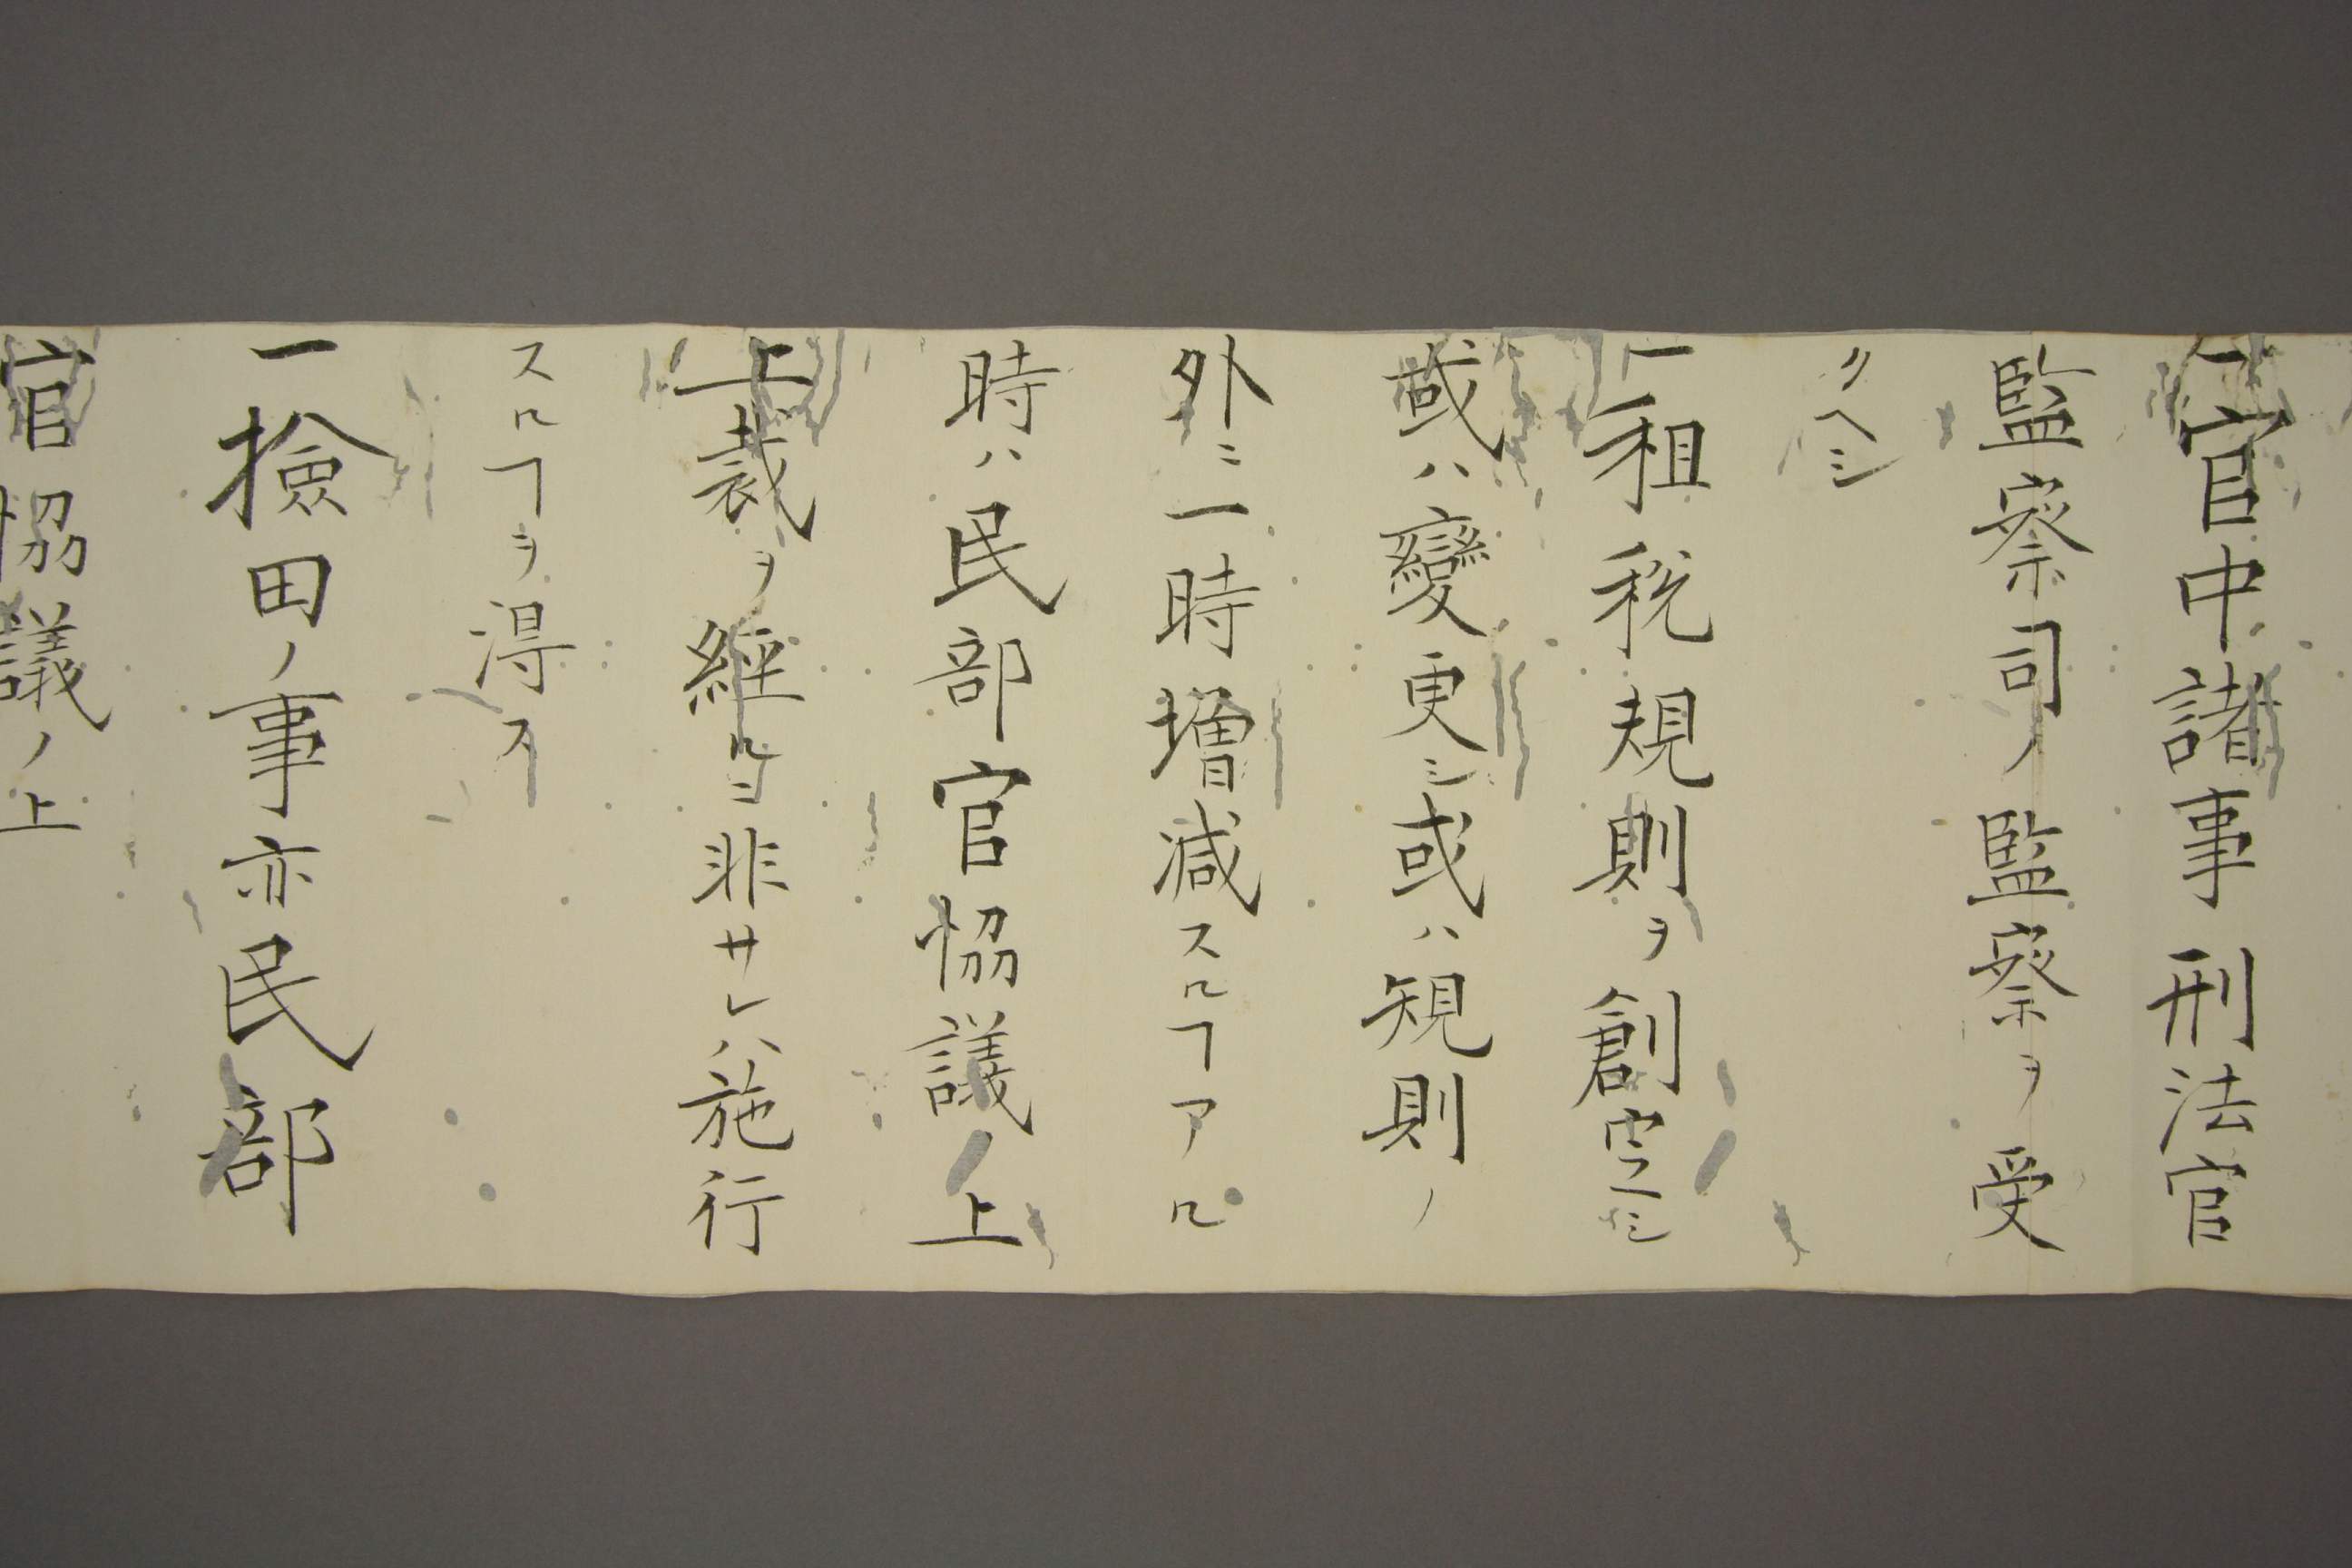 一官中諸事刑法官
監察司ノ監察ヲ受
クヘシ
一租税規則ヲ創定シ
或ハ變更シ或ハ規則ノ
外ニ一時増减スルヿアル
時ハ民部官恊議ノ上
上裁ヲ經ルニ非サレハ施行
スルヿヲ得ス
一撿田ノ事亦民部
官恊議ノ上